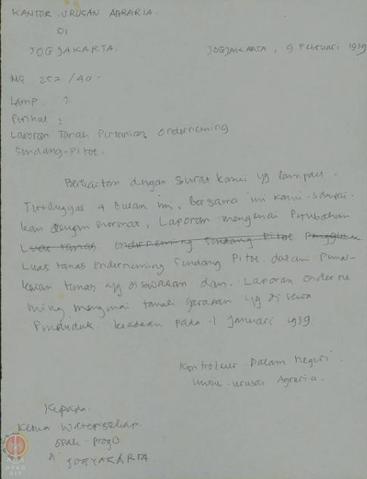 KANTOR URUSAN AGRARIA
DI
JOGJAKARTA.
JOGJAKARTA, 9 Februari 1939
No 252/A0.
Lamp :
Perihal :
Laporan Tanah Pertanian Onderneming
Sendang-Pitoe.
Berkaitan dengan Surat kami yg
Tertanggal 4 Bulan ini, Bersama ini kami sampai
kan dengan hormat, Laporan mengenai Perubahan
Luas tanas Onderneming Sendang Pitoe
Luas tanas Onderneming Sendang Pitoe. dalam Pema-
kaian tanas yg disewakan dan. Laporan onderne
ming mengenai tanah garapan yg di sewa
Penduduk keadaan pada 1 Januari 1939.
Kontroleur Dalam Negri
Untuk urusan Agraria.
Kepada.
Ketua Waterschap
Opak-Progo
di JOGYAKARTA